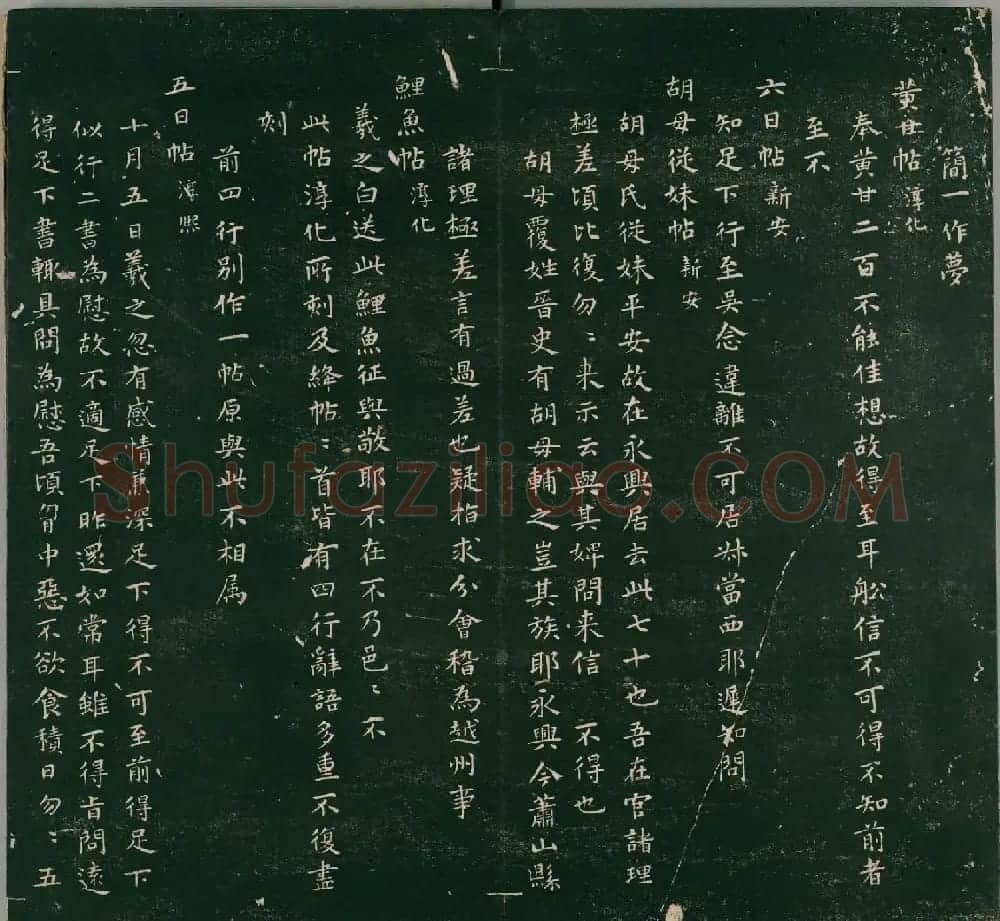 簡一作夢
黃甘帖 淳化
奉黃甘二百不能佳想故得至耳舩信不可得不知前者
至不
六日帖 新安
知足下行至吳念違離不可居叔當西耶遲知問
胡母從妹帖 新安
胡母氏從妹平安故在永興居去此七十也吾在官諸理
極差頃比復勿〻来示云與其婢問来信 不得也
胡母覆姓晉史有胡母輔之豈其族耶永興今蕭山縣
諸理極差言有過差也疑指求分會稽為越州事
鯉魚帖 淳化
羲之白送此鯉魚征與敬耶不在不乃邑〻不
此帖淳化所刻及絳帖〻首皆有四行辭語多重不復盡
刻
前四行別作一帖原與此不相属
五日帖 淳熙
十月五日羲之忽有感情兼深足下得不可至前得足下
似行二書為慰故不適足下昨還如常耳雖不得肯問遠
得足下書輒具問為慰吾頃胷中惡不欲食積日勿〻五
Shufaziliao.COM